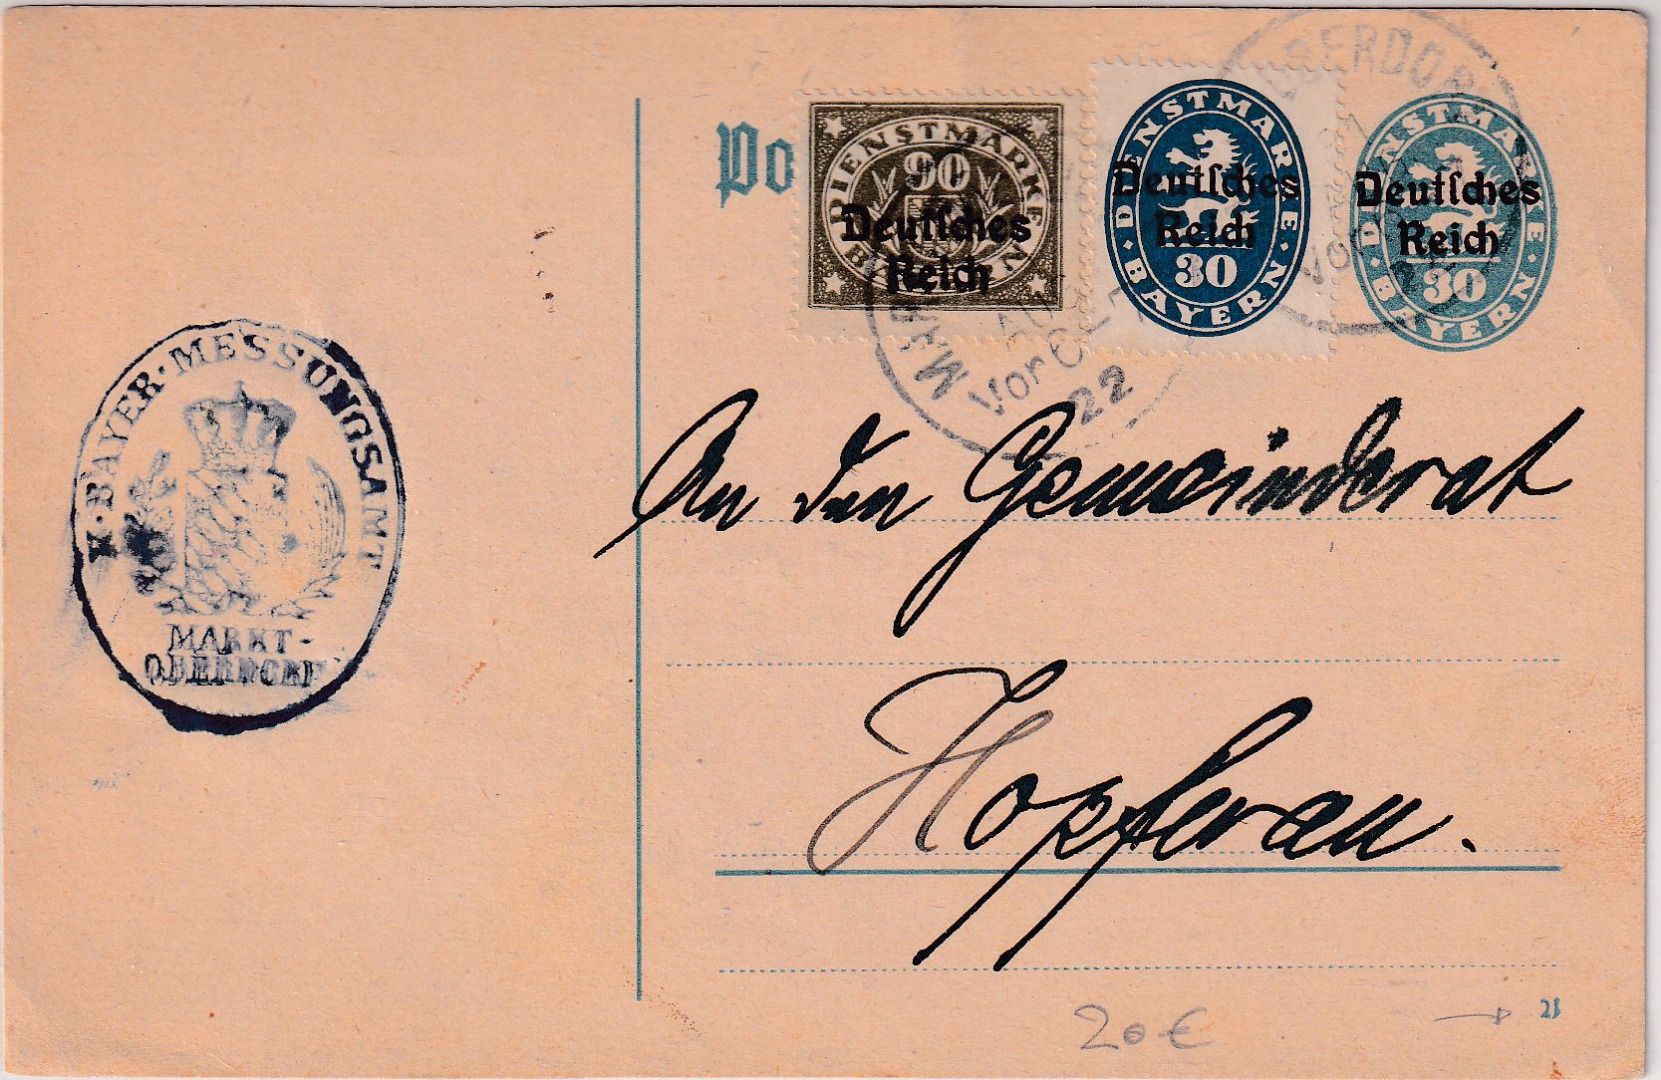 Po
DIENSTMARKE
90
BAYERN
Deutsches
Reich
DIENSTMARKE
30
BAYERN
Deutsches
Reich
DIENSTMARKE
30
BAYERN
Deutsches
Reich
OBERDOR
Vor
MA
AUG
Vor
22
K·BAYER·MESSUNGSAMT
MARKT-
OBERDORF
An den Gemeinderat
Hopferau.
20€
21